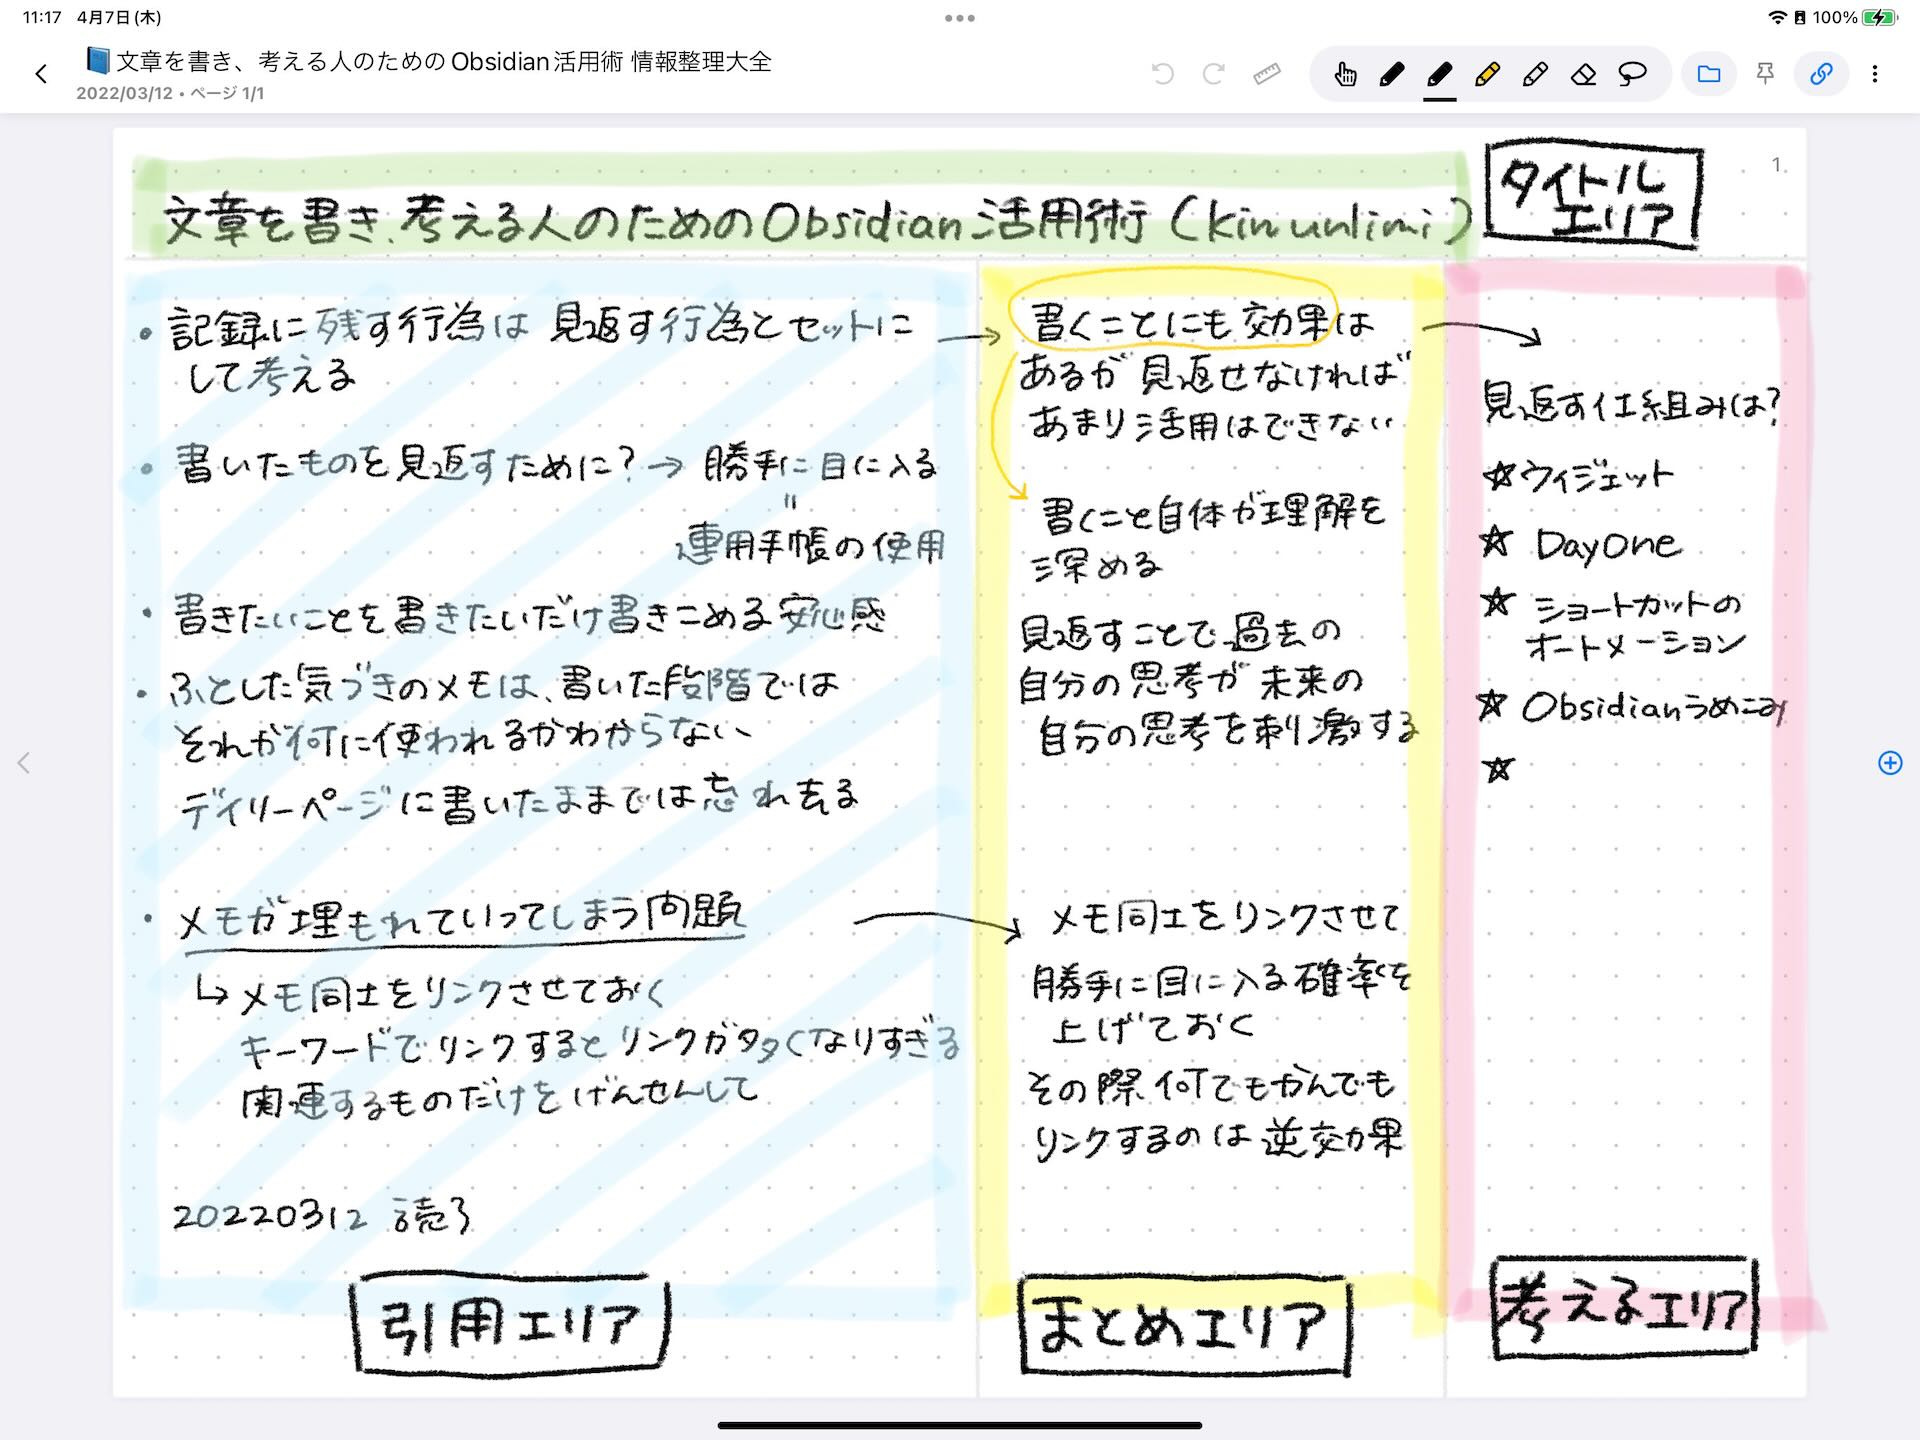 11:17 4月7日(木)
100%
文章を書き、考える人のためのObsidian活用術 情報整理大全
2022/03/12 • ページ 1/1
1
文章を書き、考える人のためのObsidian活用術(kinunlimi)
タイトル
エリア
・記録に残す行為は 見返す行為とセットに
して考える
・書いたものを見返すために?→勝手に目に入る
〃
連用手帳の使用
・書きたいことを書きたいだけ書きこめる安心感
・ふとした気づきのメモは、書いた段階では
それが何に使われるかわからない
デイリーページに書いたままでは忘れ去る
・メモが埋もれていってしまう問題
↳メモ同士をリンクさせておく
キーワードでリンクするとリンクが多くなりすぎる
関連するものだけをげんせんして
20220312 読了
引用エリア
→書くことにも効果は
あるが見返せなければ
あまり活用はできない
書くこと自体が理解を
深める
見返すことで過去の
自分の思考が未来の
自分の思考を刺激する
→メモ同士をリンクさせて
勝手に目に入る確率を
上げておく
その際何でもかんでも
リンクするのは逆効果
まとめエリア
→見返す仕組みは?
☆ウィジェット
☆DayOne
☆ショートカットの
オートメーション
☆Obsidianうめこみ
☆
考えるエリア